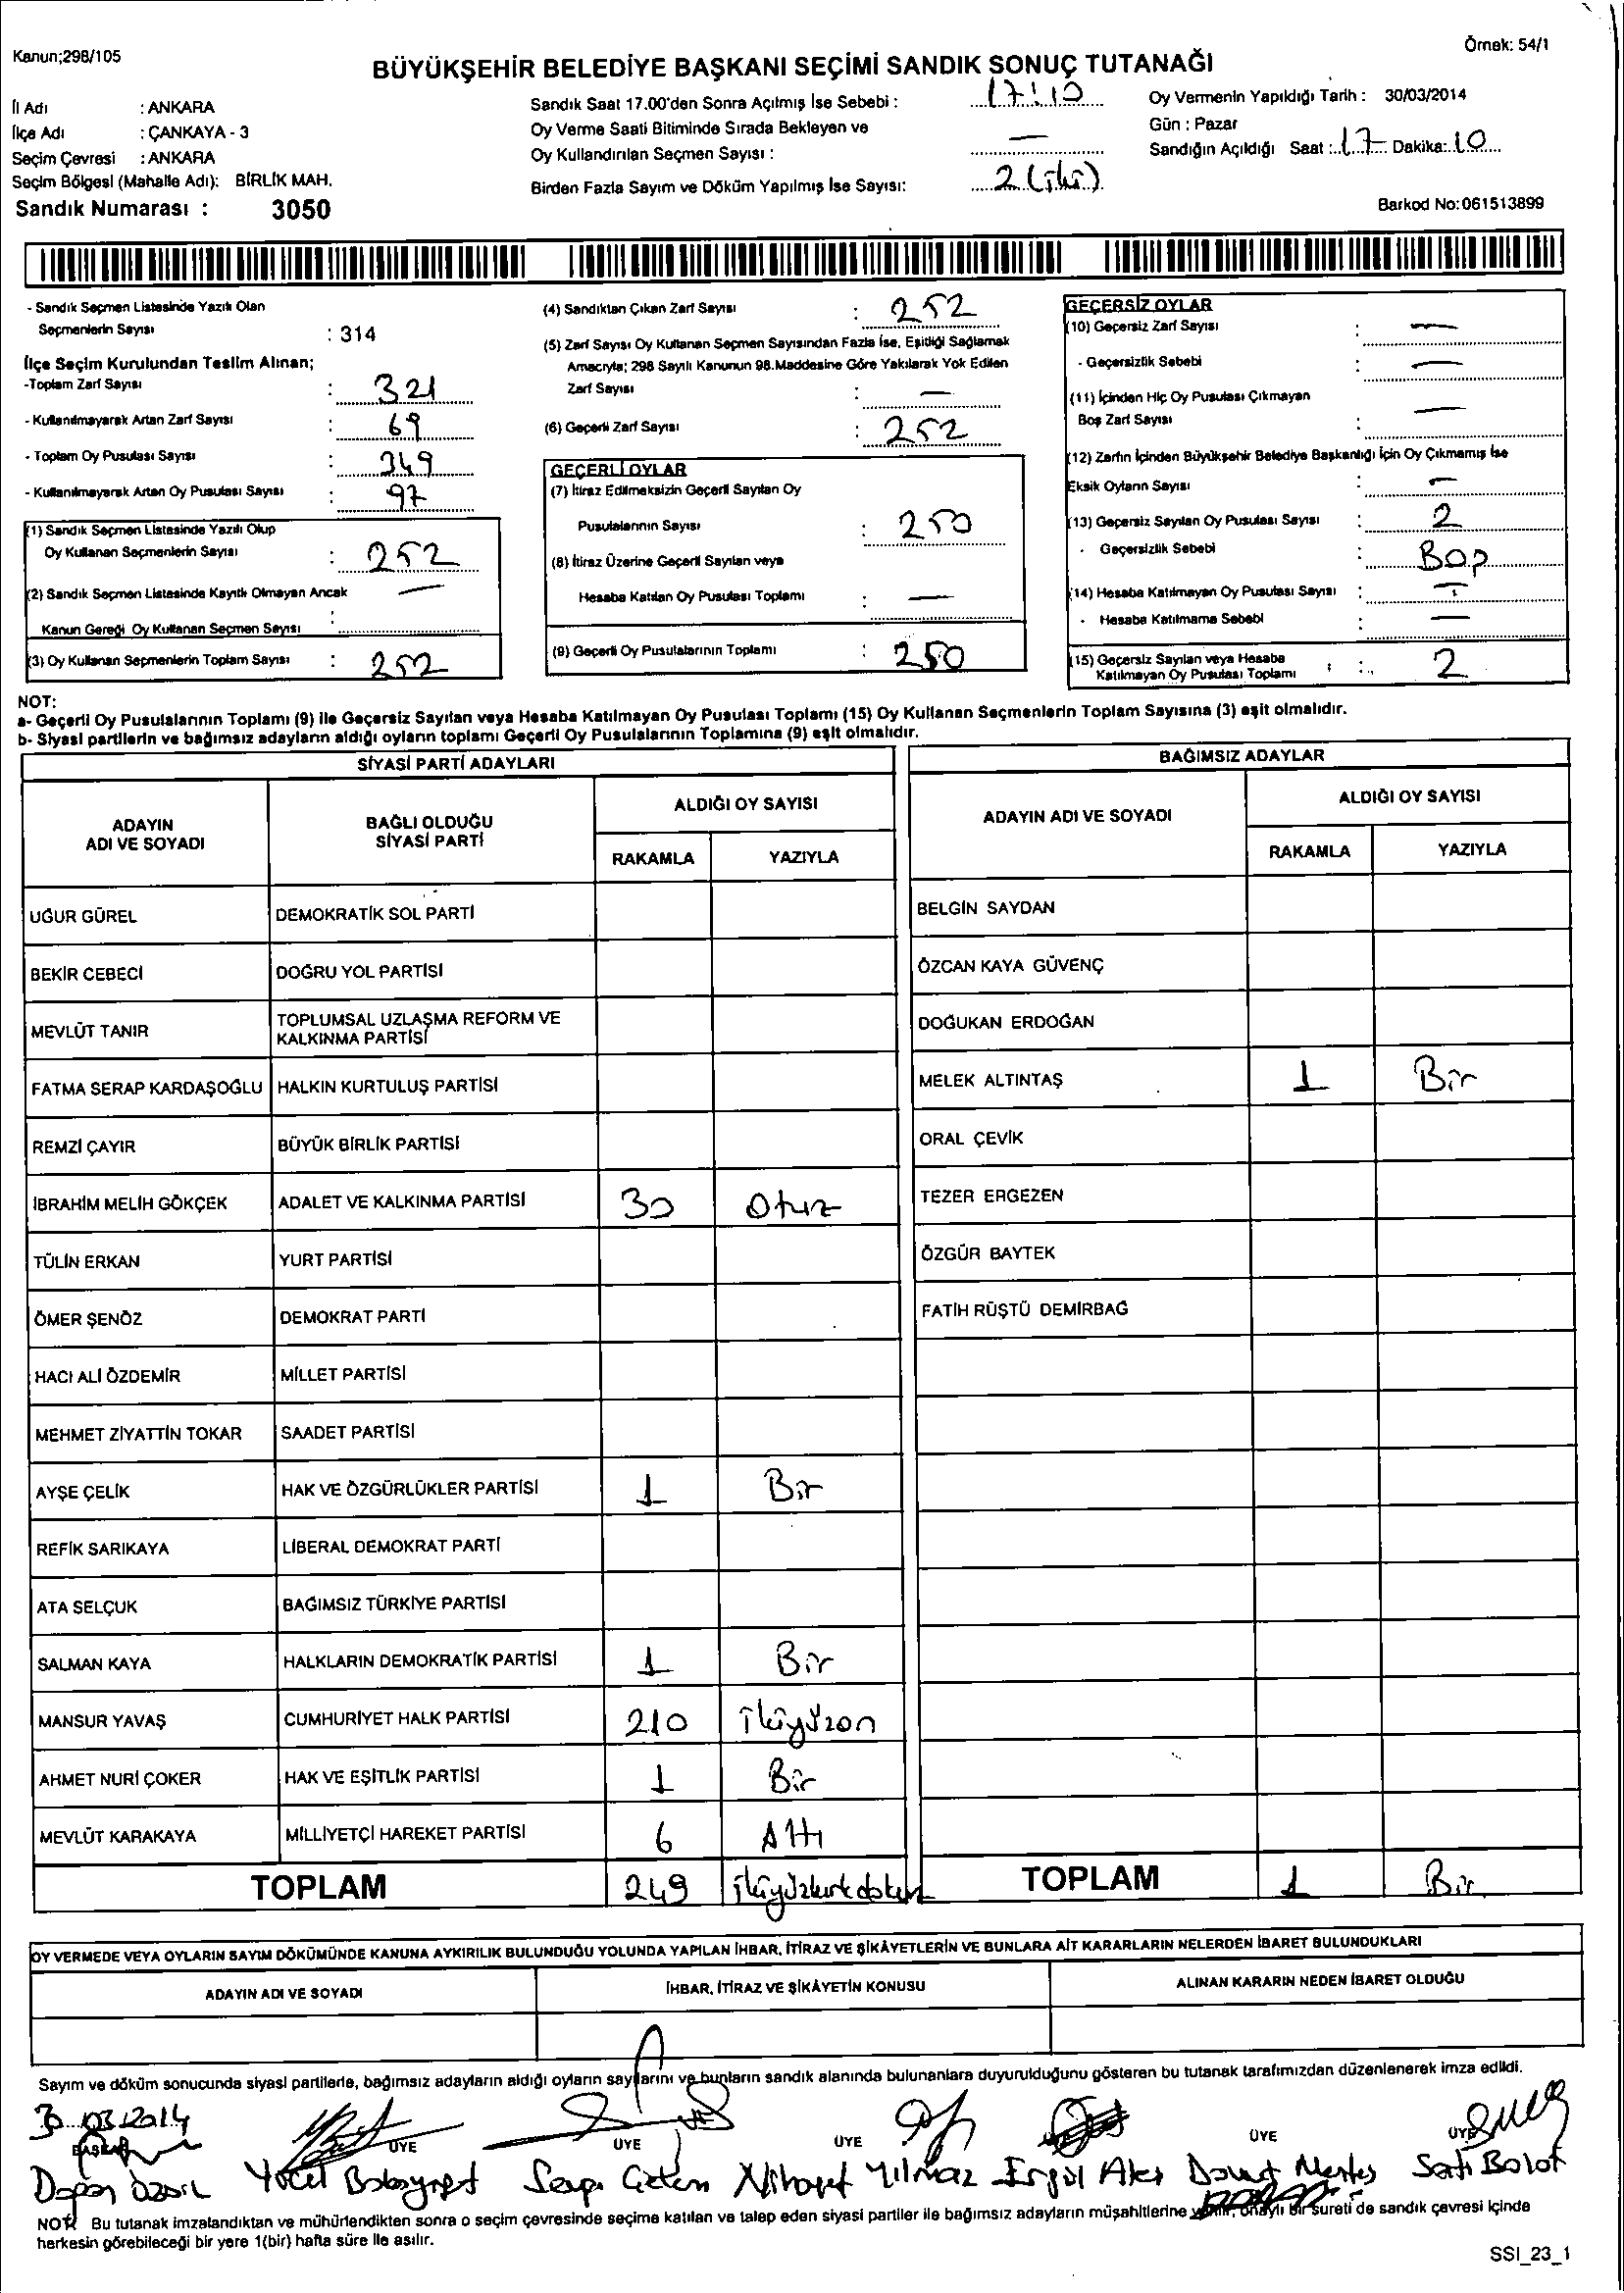 Kanun;298/105
Örnek: 54/1
BÜYÜKŞEHİR BELEDİYE BAŞKANI SEÇİMİ SANDIK SONUÇ TUTANAĞI
İl Adı : ANKARA
İlçe Adı : ÇANKAYA - 3
Seçim Çevresi : ANKARA
Seçim Bölgesi (Mahalle Adı): BİRLİK MAH.
Sandık Numarası : 3050
Sandık Saat 17.00'den Sonra Açılmış İse Sebebi : 17:10
Oy Verme Saati Bitiminde Sırada Bekleyen ve
Oy Kullandırılan Seçmen Sayısı : —
Birden Fazla Sayım ve Döküm Yapılmış İse Sayısı: 2 (iki)
Oy Vermenin Yapıldığı Tarih : 30/03/2014
Gün : Pazar
Sandığın Açıldığı Saat : 17 Dakika: 10
Barkod No:061513899
- Sandık Seçmen Listesinde Yazılı Olan
Seçmenlerin Sayısı : 314
İlçe Seçim Kurulundan Teslim Alınan;
-Toplam Zarf Sayısı : 321
- Kullanılmayarak Artan Zarf Sayısı : 69
- Toplam Oy Pusulası Sayısı : 349
- Kullanılmayarak Artan Oy Pusulası Sayısı : 97
(1) Sandık Seçmen Listesinde Yazılı Olup
Oy Kullanan Seçmenlerin Sayısı : 252
(2) Sandık Seçmen Listesinde Kayıtlı Olmayan Ancak
Kanun Gereği Oy Kullanan Seçmen Sayısı : —
(3) Oy Kullanan Seçmenlerin Toplam Sayısı : 252
(4) Sandıktan Çıkan Zarf Sayısı : 252
(5) Zarf Sayısı Oy Kullanan Seçmen Sayısından Fazla İse, Eşitliği Sağlamak
Amacıyla; 298 Sayılı Kanunun 98.Maddesine Göre Yakılarak Yok Edilen
Zarf Sayısı : —
(6) Geçerli Zarf Sayısı : 252
GEÇERLİ OYLAR
(7) İtiraz Edilmeksizin Geçerli Sayılan Oy
Pusulalarının Sayısı : 250
(8) İtiraz Üzerine Geçerli Sayılan veya
Hesaba Katılan Oy Pusulası Toplamı : —
(9) Geçerli Oy Pusulalarının Toplamı : 250
GEÇERSİZ OYLAR
(10) Geçersiz Zarf Sayısı : —
- Geçersizlik Sebebi : —
(11) İçinden Hiç Oy Pusulası Çıkmayan
Boş Zarf Sayısı : —
(12) Zarfın İçinden Büyükşehir Belediye Başkanlığı İçin Oy Çıkmamış İse
Eksik Oyların Sayısı : —
(13) Geçersiz Sayılan Oy Pusulası Sayısı : 2
- Geçersizlik Sebebi :
(14) Hesaba Katılmayan Oy Pusulası Sayısı : —
- Hesaba Katılmama Sebebi : —
(15) Geçersiz Sayılan veya Hesaba
Katılmayan Oy Pusulası Toplamı : 2
NOT:
a- Geçerli Oy Pusulalarının Toplamı (9) ile Geçersiz Sayılan veya Hesaba Katılmayan Oy Pusulası Toplamı (15) Oy Kullanan Seçmenlerin Toplam Sayısına (3) eşit olmalıdır.
b- Siyasi partilerin ve bağımsız adayların aldığı oyların toplamı Geçerli Oy Pusulalarının Toplamına (9) eşit olmalıdır.
SİYASİ PARTİ ADAYLARI
ADAYIN ADI VE SOYADI BAĞLI OLDUĞU SİYASİ PARTİ ALDIĞI OY SAYISI
RAKAMLA YAZIYLA
UĞUR GÜREL DEMOKRATİK SOL PARTİ
BEKİR CEBECİ DOĞRU YOL PARTİSİ
MEVLÜT TANIR TOPLUMSAL UZLAŞMA REFORM VE KALKINMA PARTİSİ
FATMA SERAP KARDAŞOĞLU HALKIN KURTULUŞ PARTİSİ
REMZİ ÇAYIR BÜYÜK BİRLİK PARTİSİ
İBRAHİM MELİH GÖKÇEK ADALET VE KALKINMA PARTİSİ 30 Otuz
TÜLİN ERKAN YURT PARTİSİ
ÖMER ŞENÖZ DEMOKRAT PARTİ
HACI ALİ ÖZDEMİR MİLLET PARTİSİ
MEHMET ZİYATTİN TOKAR SAADET PARTİSİ
AYŞE ÇELİK HAK VE ÖZGÜRLÜKLER PARTİSİ 1 Bir
REFİK SARIKAYA LİBERAL DEMOKRAT PARTİ
ATA SELÇUK BAĞIMSIZ TÜRKİYE PARTİSİ
SALMAN KAYA HALKLARIN DEMOKRATİK PARTİSİ 1 Bir
MANSUR YAVAŞ CUMHURİYET HALK PARTİSİ 210 ikiyüzon
AHMET NURİ ÇOKER HAK VE EŞİTLİK PARTİSİ 1 Bir
MEVLÜT KARAKAYA MİLLİYETÇİ HAREKET PARTİSİ 6 Altı
TOPLAM 249 ikiyüzkırkdokuz
BAĞIMSIZ ADAYLAR
ADAYIN ADI VE SOYADI ALDIĞI OY SAYISI
RAKAMLA YAZIYLA
BELGİN SAYDAN
ÖZCAN KAYA GÜVENÇ
DOĞUKAN ERDOĞAN
MELEK ALTINTAŞ 1 Bir
ORAL ÇEVİK
TEZER ERGEZEN
ÖZGÜR BAYTEK
FATİH RÜŞTÜ DEMİRBAĞ
TOPLAM 1 Bir
OY VERMEDE VEYA OYLARIN SAYIM DÖKÜMÜNDE KANUNA AYKIRILIK BULUNDUĞU YOLUNDA YAPILAN İHBAR, İTİRAZ VE ŞİKÂYETLERİN VE BUNLARA AİT KARARLARIN NELERDEN İBARET BULUNDUKLARI
ADAYIN ADI VE SOYADI İHBAR, İTİRAZ VE ŞİKÂYETİN KONUSU ALINAN KARARIN NEDEN İBARET OLDUĞU
Sayım ve döküm sonucunda siyasi partilerle, bağımsız adayların aldığı oyların sayılarını ve bunların sandık alanında bulunanlara duyurulduğunu gösteren bu tutanak tarafımızdan düzenlenerek imza edildi.
30.03.2014
BAŞKAN ÜYE ÜYE ÜYE ÜYE ÜYE ÜYE
Doğan Yücel Nihayet Yılmaz Satı Bolat
NOT: Bu tutanak imzalandıktan ve mühürlendikten sonra o seçim çevresinde seçime katılan ve talep eden siyasi partiler ile bağımsız adayların müşahitlerine verilir, onaylı bir sureti de sandık çevresi içinde
herkesin görebileceği bir yere 1(bir) hafta süre ile asılır.
SSI_23_1